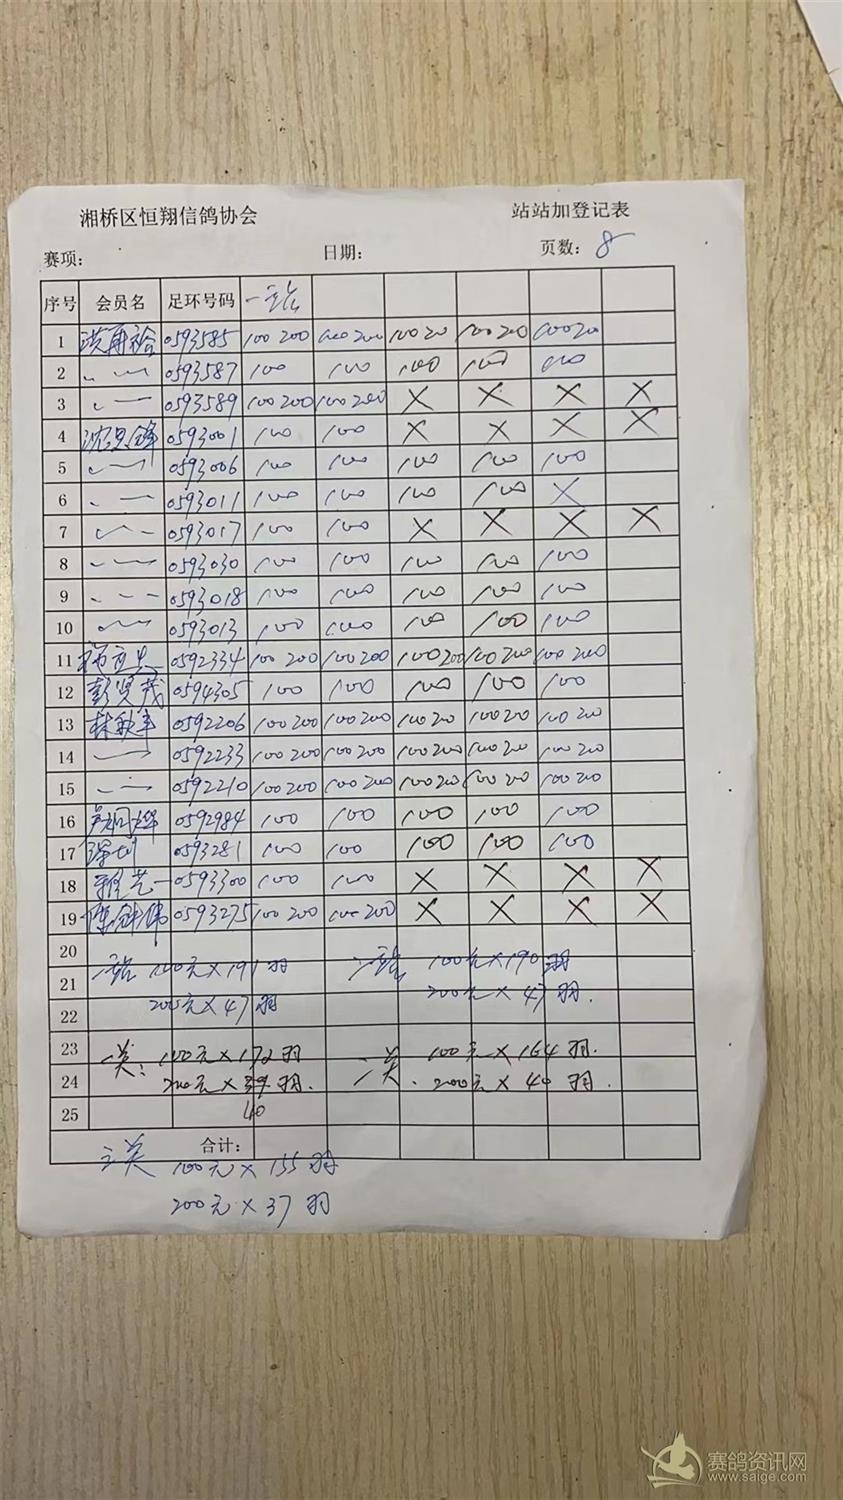 湘桥区恒翔信鸽协会 站站加登记表
赛项： 日期： 页数：8
序号 会员名 足环号码 一站
1 洪再裕 0593585 100 200 100 200 100 20 100 200 100 20
2 〃 0593587 100 100 100 100 100
3 〃 0593589 100 200 100 200 × × × ×
4 0593001 100 100 × × × ×
5 〃 0593006 100 100 100 100 100
6 〃 0593011 100 100 100 100 ×
7 〃 0593017 100 100 × × × ×
8 〃 0593030 100 100 100 100 100
9 〃 0593018 100 100 100 100 100
10 〃 0593013 100 100 100 100 100
11 0592334 100 200 100 200 100 200 100 200 100 200
12 彭贤茂 0594305 100 100 100 100 100
13 0592206 100 200 100 200 100 20 100 20 100 20
14 〃 0592233 100 200 100 200 100 200 100 20 100 200
15 〃 0592210 100 200 100 200 100 20 100 20 100 20
16 0592984 100 100 100 100 100
17 0593281 100 100 100 100 100
18 0593300 100 100 × × × ×
19 陈钟伟 0593275 100 200 100 200 × × × ×
20
21 一站 100元×191羽 二站 100元×190羽
22 200元×47羽 200元×47羽.
23 一关： 100元×172羽 二关. 100元×164羽.
24 200元× 羽. 200元×40羽.
25 40
合计：
三关 100元×155羽
200元×37羽
赛鸽资讯网
www.saige.com